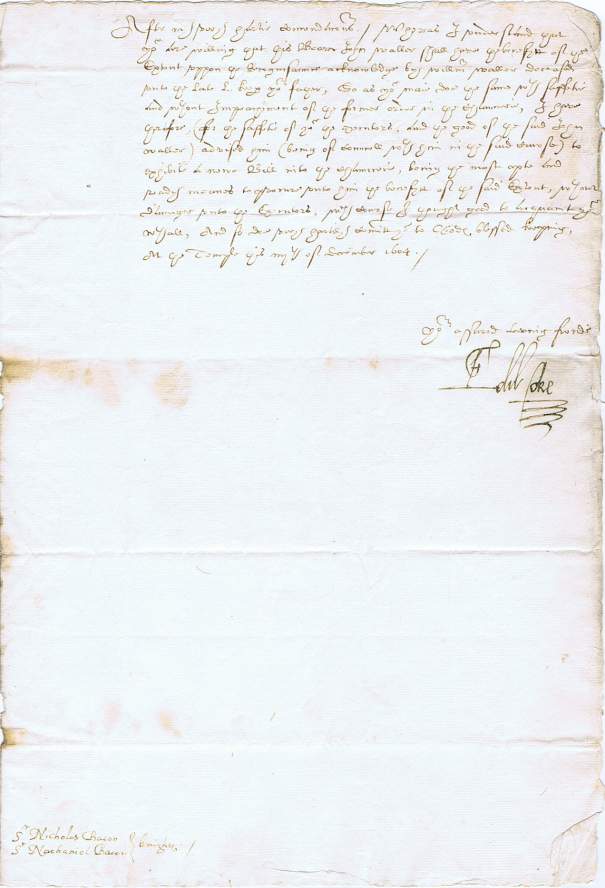 After my verie hartie comendacons./ Wheras I understand that
yow are willing that this Bearer John Waller shall have the benefitt of the
Extent uppon the Recognisaunce acknowledged by Willm Waller deceased
unto the late L. keeper yor father, So as yow maie doe the same with saffetie
and wthout Impeachment of the former order in the Chauncery, I have
therfore, (for the saffetie of yow the Executors, and the good of the said John
Waller) advised him (being of Counsell with him in the said cause) to
exhibite a newe Bill into the Chauncery, being the most apte and
readie meanes to procure unto him the benefitt of the said Extent, without
damage unto the Executors, which course I thought good to acquaint yow
withall, And so doe verie hartely comitt yow to Gods blessed keeping,
At the Temple this of december 1604./
Yor assured loving frende
Edw Coke
Sr Nicholas Bacon
Sr Nathaniel Bacon knightes./